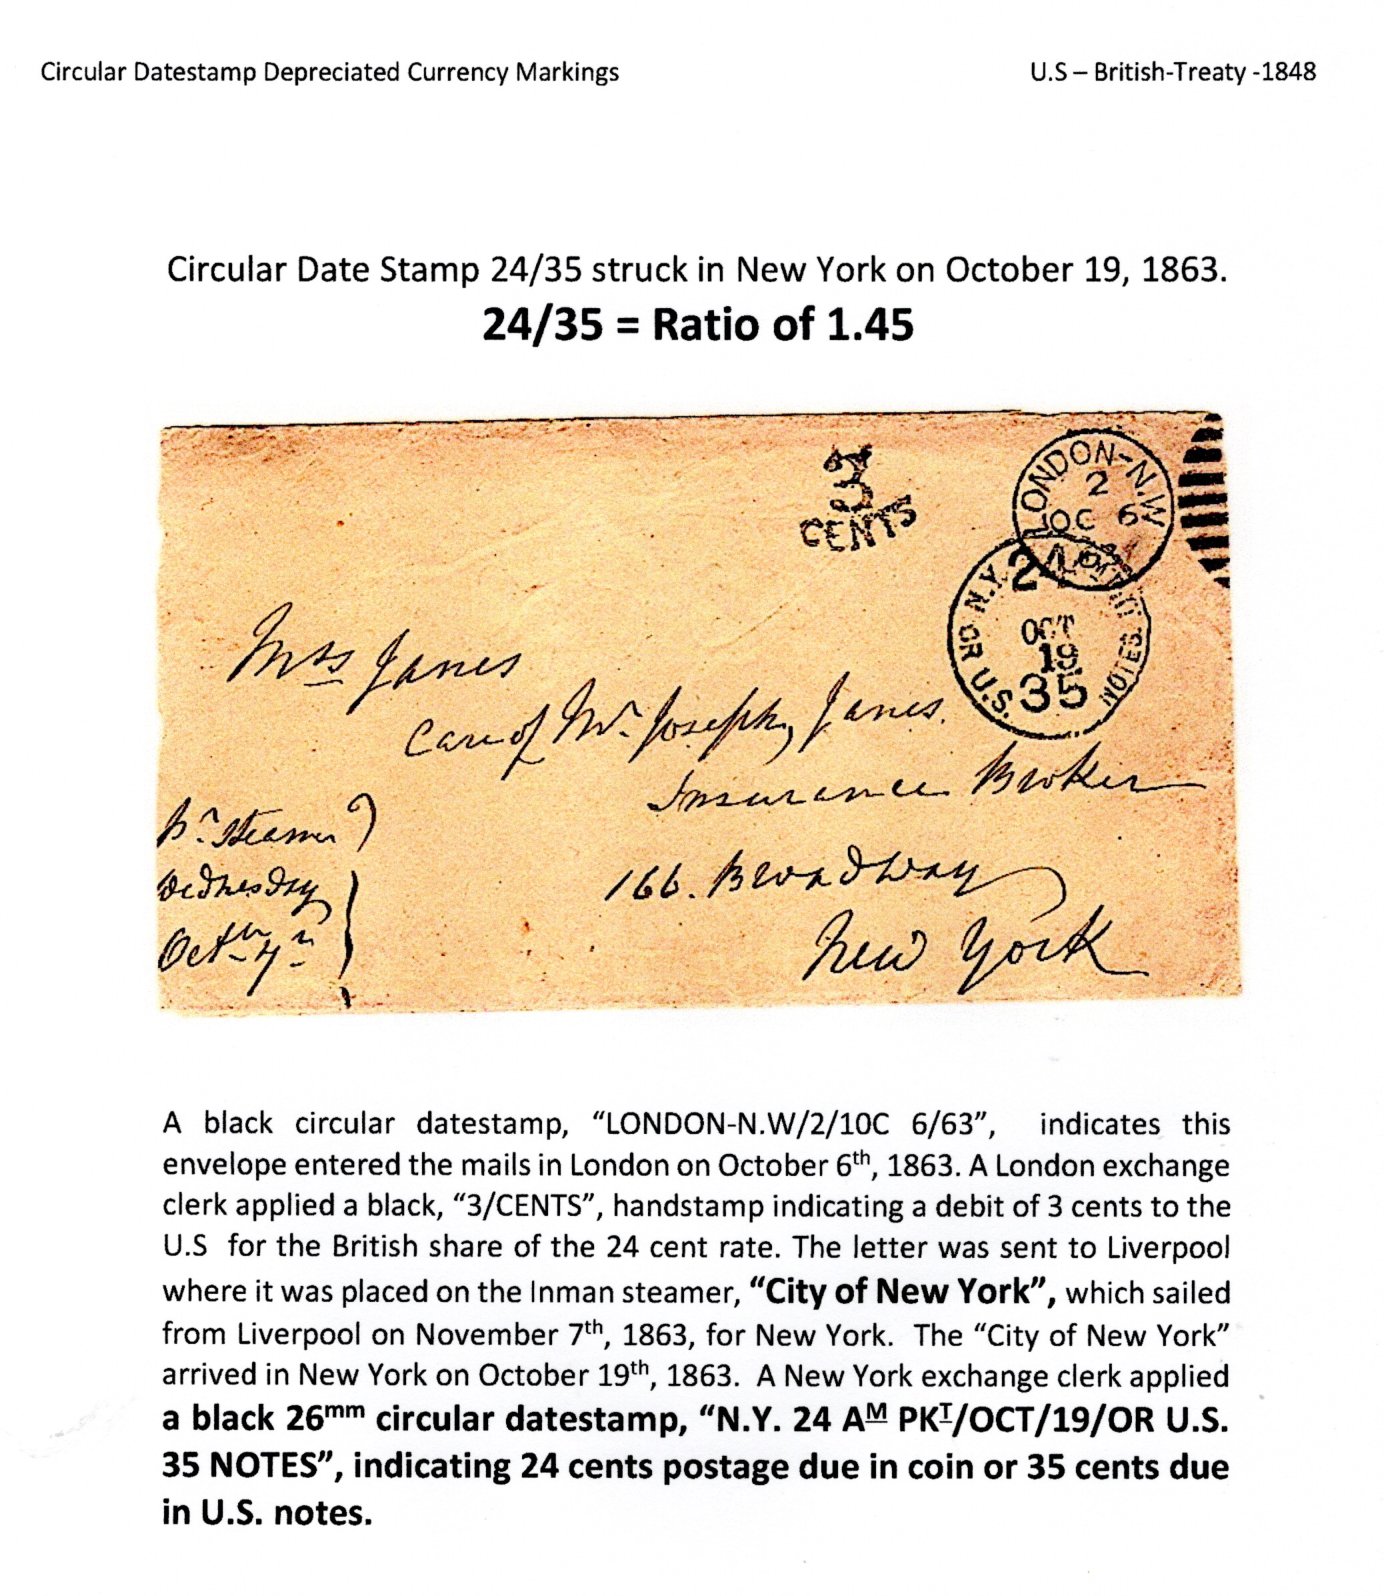 Circular Datestamp Depreciated Currency Markings
U.S – British-Treaty -1848
Circular Date Stamp 24/35 struck in New York on October 19, 1863.
24/35 = Ratio of 1.45
3
CENTS
LONDON-N.W
2
OC 6
N.Y. 24
OCT
19
OR U.S. 35 NOTES.
Mrs Janes
Care of Mr. Joseph Janes.
Insurance Broker
166. Broadway
New York
Pr. Steamer
Wednesday
Octbr 7th
A black circular datestamp, “LONDON-N.W/2/10C 6/63”, indicates this
envelope entered the mails in London on October 6th, 1863. A London exchange
clerk applied a black, “3/CENTS”, handstamp indicating a debit of 3 cents to the
U.S for the British share of the 24 cent rate. The letter was sent to Liverpool
where it was placed on the Inman steamer, “City of New York”, which sailed
from Liverpool on November 7th, 1863, for New York. The “City of New York”
arrived in New York on October 19th, 1863. A New York exchange clerk applied
a black 26mm circular datestamp, “N.Y. 24 AM PKT/OCT/19/OR U.S.
35 NOTES”, indicating 24 cents postage due in coin or 35 cents due
in U.S. notes.